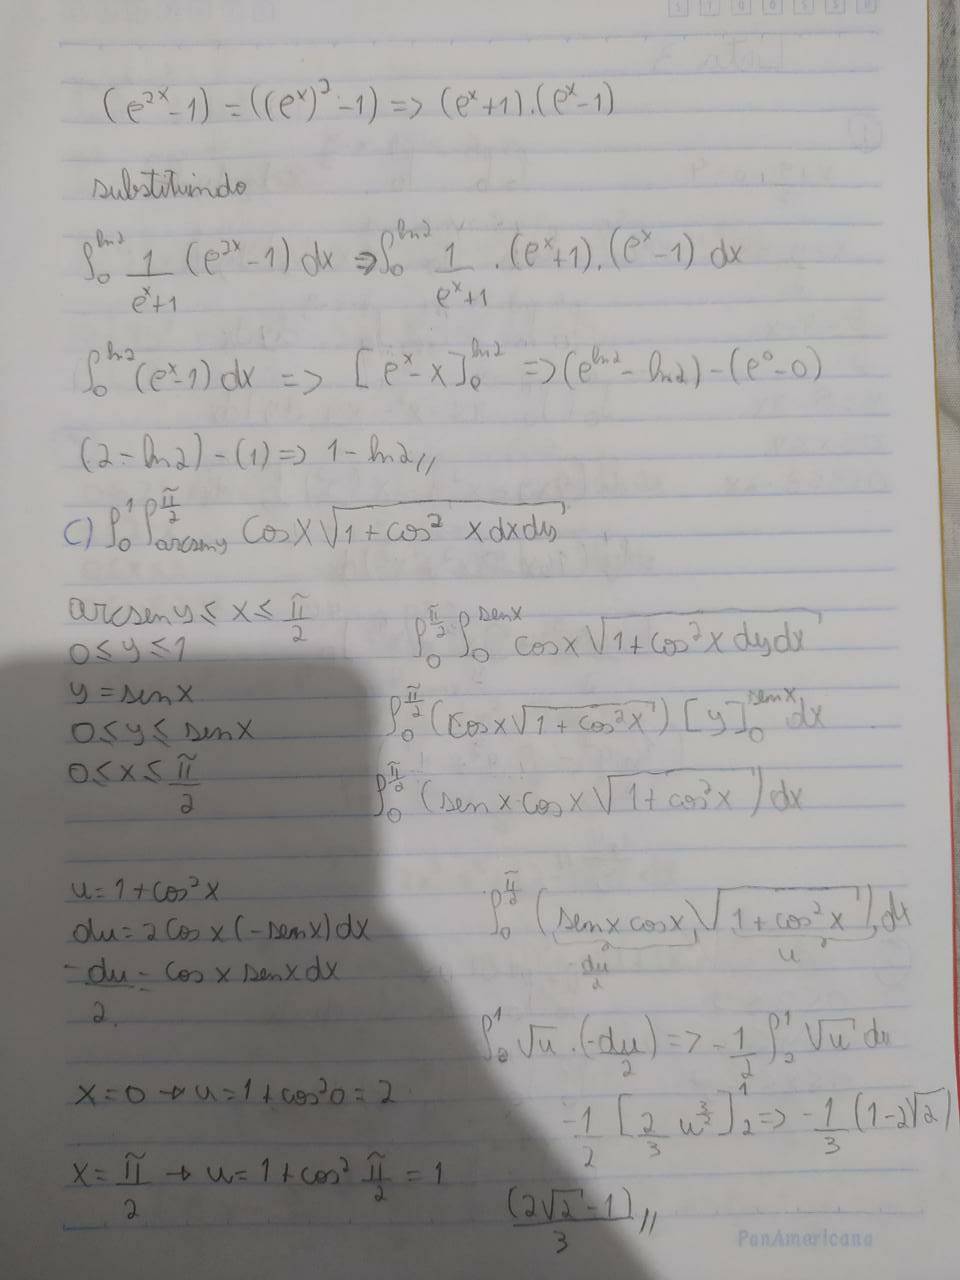 (e^{2x} - 1) = ((e^x)^2 - 1) => (e^x + 1).(e^x - 1)
substituindo
∫_0^{ln2} \frac{1}{e^x+1} (e^{2x} - 1) dx => ∫_0^{ln2} \frac{1}{e^x+1} .(e^x+1).(e^x - 1) dx
∫_0^{ln2} (e^x - 1) dx => [e^x - x]_0^{ln2} => (e^{ln2} - ln2) - (e^0 - 0)
(2 - ln2) - (1) => 1 - ln2 //
C) ∫_0^1 ∫_{arcsen y}^{\frac{π}{2}} cos x \sqrt{1 + cos^2 x dx dy}
arcsen y ≤ x ≤ \frac{π}{2}
0 ≤ y ≤ 1
∫_0^{\frac{π}{2}} ∫_0^{sen x} cos x \sqrt{1 + cos^2 x dy dx}
y = sen x
0 ≤ y ≤ sen x
∫_0^{\frac{π}{2}} (cos x \sqrt{1 + cos^2 x}) [y]_0^{sen x} dx
0 ≤ x ≤ \frac{π}{2}
∫_0^{\frac{π}{2}} (sen x · cos x \sqrt{1 + cos^2 x}) dx
u = 1 + cos^2 x
du = 2 cos x (- sen x) dx
-\frac{du}{2} = cos x sen x dx
∫_0^{\frac{π}{2}} (sen x cos x \sqrt{1 + cos^2 x}) dx
-\frac{du}{2} u
∫_2^1 \sqrt{u} . (-\frac{du}{2}) => -\frac{1}{2} ∫_2^1 \sqrt{u} du
x = 0 → u = 1 + cos^2 0 = 2
-\frac{1}{2} [\frac{2}{3} u^{\frac{3}{2}}]_2^1 => -\frac{1}{3} (1 - 2\sqrt{2})
x = \frac{π}{2} → u = 1 + cos^2 \frac{π}{2} = 1
\frac{(2\sqrt{2} - 1)}{3} //
PanAmericana